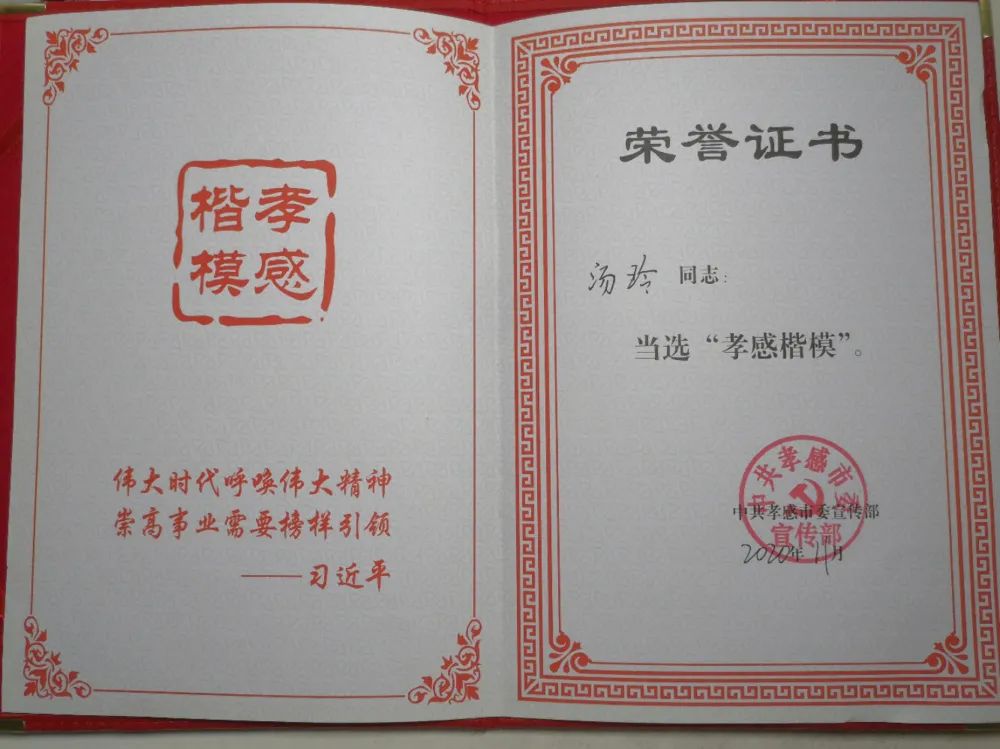 孝感
楷模
伟大时代呼唤伟大精神
崇高事业需要榜样引领
——习近平
荣誉证书
汤玲 同志:
当选“孝感楷模”。
中共孝感市委
宣传部
中共孝感市委宣传部
2020年11月